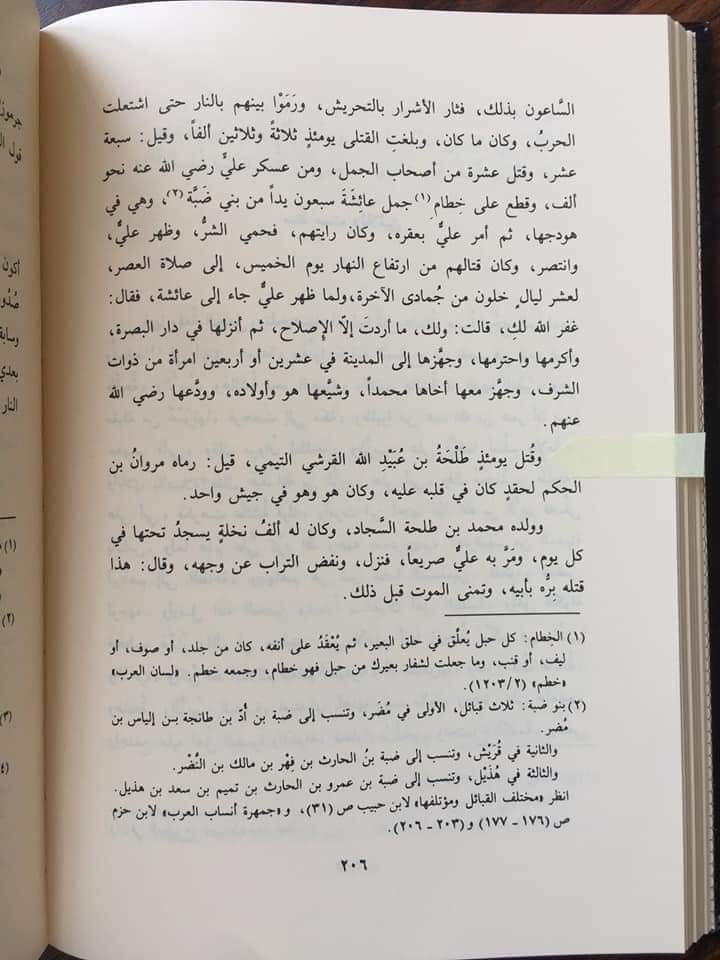 السَّاعون بذلك، فثار الأشرار بالتحريش، ورَمَوْا بينهم بالنار حتى اشتعلت
الحربُ، وكان ما كان، وبلغتِ القتلى يومئذٍ ثلاثةً وثلاثين ألفاً، وقيل: سبعة
عشر، وقتل عشرة من أصحاب الجمل، ومن عسكر عليٍّ رضي الله عنه نحو
ألف، وقطع على خِطامِ(١) جمل عائِشَةَ سبعون يداً من بني ضَبَّة(٢)، وهي في
هودجها، ثم أمر عليٌّ بعقره، وكان رايتهم، فحمي الشرُّ، وظهر عليٌّ،
وانتصر، وكان قتالهم من ارتفاع النهار يوم الخميس، إلى صلاة العصر،
لعشر ليالٍ خلون من جُمادى الآخرة، ولما ظهر عليٌّ جاء إلى عائشة، فقال:
غفر الله لكِ، قالت: ولك، ما أردتَ إلّا الإصلاح، ثم أنزلها في دار البصرة،
وأكرمها واحترمها، وجهَّزها إلى المدينة في عشرين أو أربعين امرأة من ذوات
الشرف، وجهز معها أخاها محمداً، وشيَّعها هو وأولاده، وودَّعها رضي الله
عنهم.
وقُتل يومئذٍ طَلْحَةُ بن عُبَيْدِ الله القرشي التيمي، قيل: رماه مروانُ بن
الحكم لحقدٍ كان في قلبه عليه، وكان هو وهو في جيش واحد.
وولده محمد بن طلحة السَّجاد، وكان له ألفُ نخلةٍ يسجدُ تحتها في
كل يوم، ومَرَّ به عليٌّ صريعاً، فنزل، ونفض التراب عن وجهه، وقال: هذا
قتله بِرُّه بأبيه، وتمنى الموت قبل ذلك.
(١) الخِطام: كل حبل يُعلَّق في حلق البعير، ثم يُعْقَدُ على أنفه، كان من جلد، أو صوف، أو
ليف، أو قنب، وما جعلت لشفار بعيرك من حبل فهو خطام، وجمعه خطم. «لسان العرب»
«خطم» (١٢٠٣/٢).
(٢) بنو ضبة: ثلاث قبائل، الأولى في مُضَر، وتنسب إلى ضبة بن أُدّ بن طانجة بن إلياس بن
مُضر.
والثانية في قُرَيْش، وتنسب إلى ضبة بنُ الحارث بن فِهْر بن مالك بن النَّضْر.
والثالثة في هُذَيْل، وتنسب إلى ضبة بن عمرو بن الحارث بن تميم بن سعد بن هذيل.
انظر «مختلف القبائل ومؤتلفها» لابن حبيب ص (٣١)، و«جمهرة أنساب العرب» لابن حزم
ص (١٧٦ - ١٧٧) و(٢٠٣ - ٢٠٦).
٢٠٦